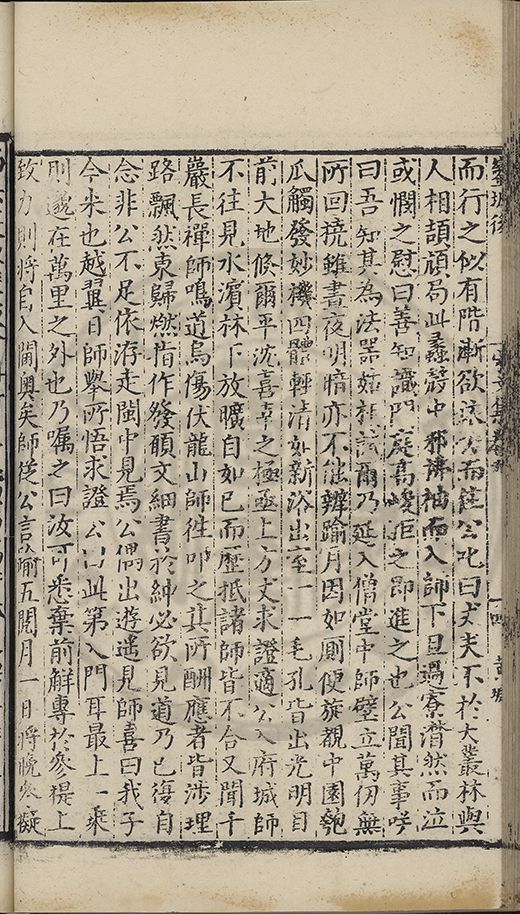 而行之似有階漸欲然而公叱曰丈夫不於大叢林與
人相頡頏局此蠡殼中邪拂袖而入師下旦過寮潸然而泣
或憫之慰曰善知識門庭高峻拒之即進之也公聞其事呼
曰吾知其為法器姑相試爾乃延入僧堂中師壁立萬仞無
所回撓雖晝夜明暗亦不能辨踰月因如厠便旋覩中園匏
瓜觸發妙機四體輕清如新浴出室一一毛孔皆出光明目
前大地倐爾平沈喜幸之極亟上方丈求證適公入府城師
不往見水濱林下放曠自如已而歷抵諸師皆不合又聞千
巖長禪師鳴道烏傷伏龍山師往叩之其所酬應者皆涉理
路飄然東歸燃指作發願文細書於紳必欲見道乃已復自
念非公不足依洊走閩中見焉公偶出遊遥見師喜曰我子
今来也越翼日師舉所悟求證公曰此第入門耳最上一乘
則邈在萬里之外也乃囑之曰汝可悉棄前解專於參提上
致力則將自入閫奥矣師從公言踰五閱月一日將晚參擬